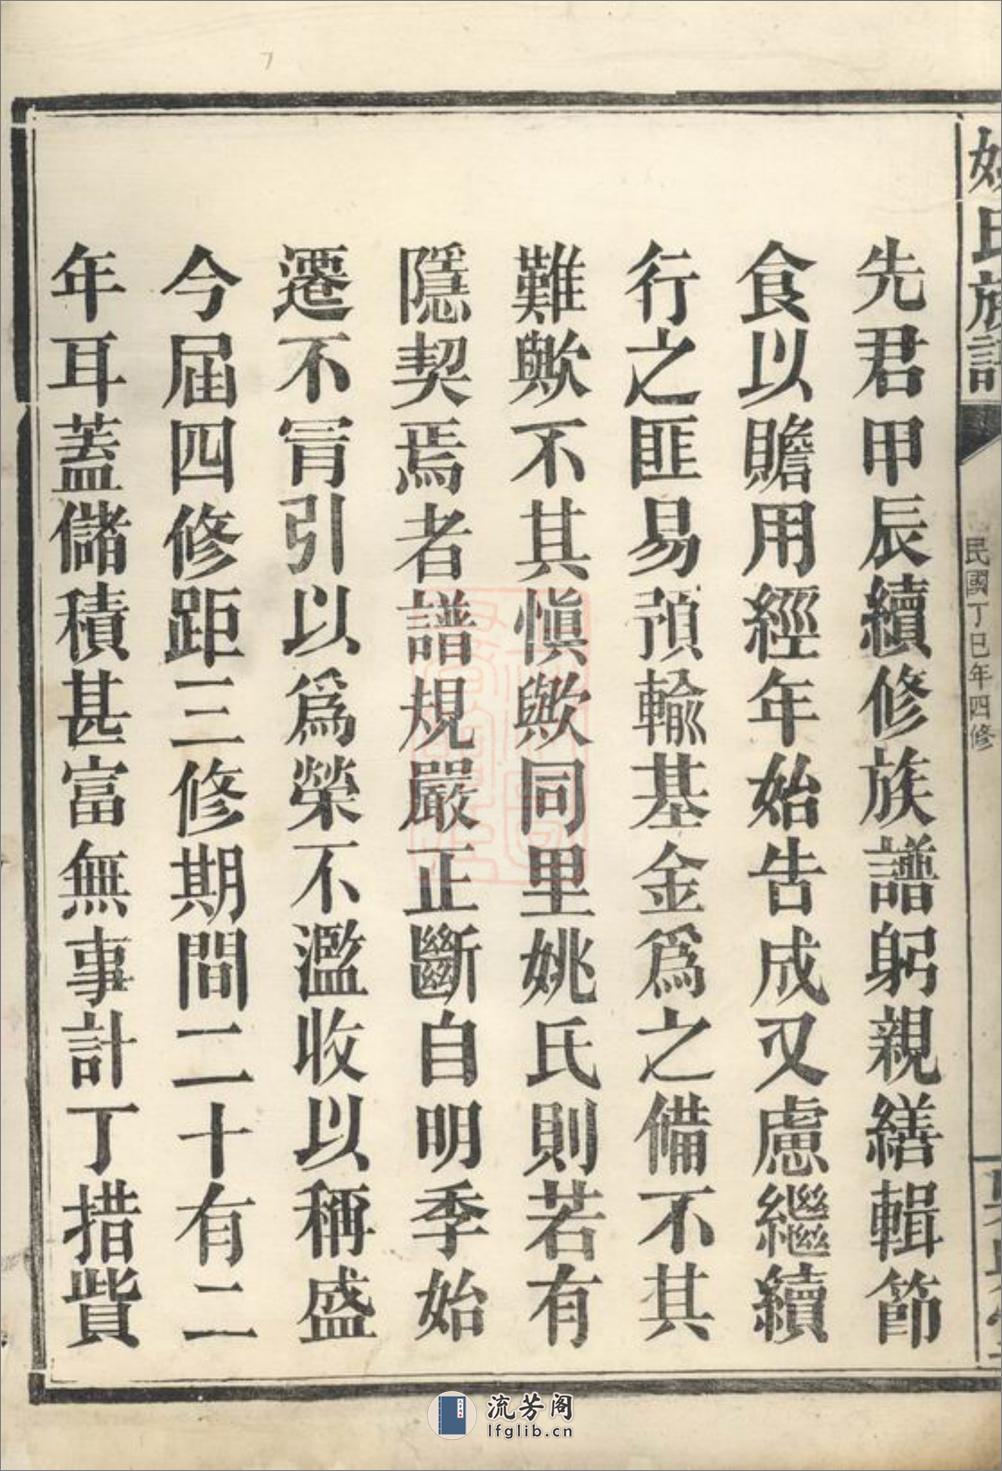 姚氏族譜
民國丁巳年四修
先君甲辰續修族譜躬親繕輯節
食以贍用經年始告成又慮繼續
行之匪易預輸基金爲之備不其
難歟不其愼歟同里姚氏則若有
隱契焉者譜規嚴正斷自明季始
遷不肯引以爲榮不濫收以稱盛
今届四修距三修期間二十有二
年耳蓋儲積甚富無事計丁措貲
流芳阁
lfglib.cn